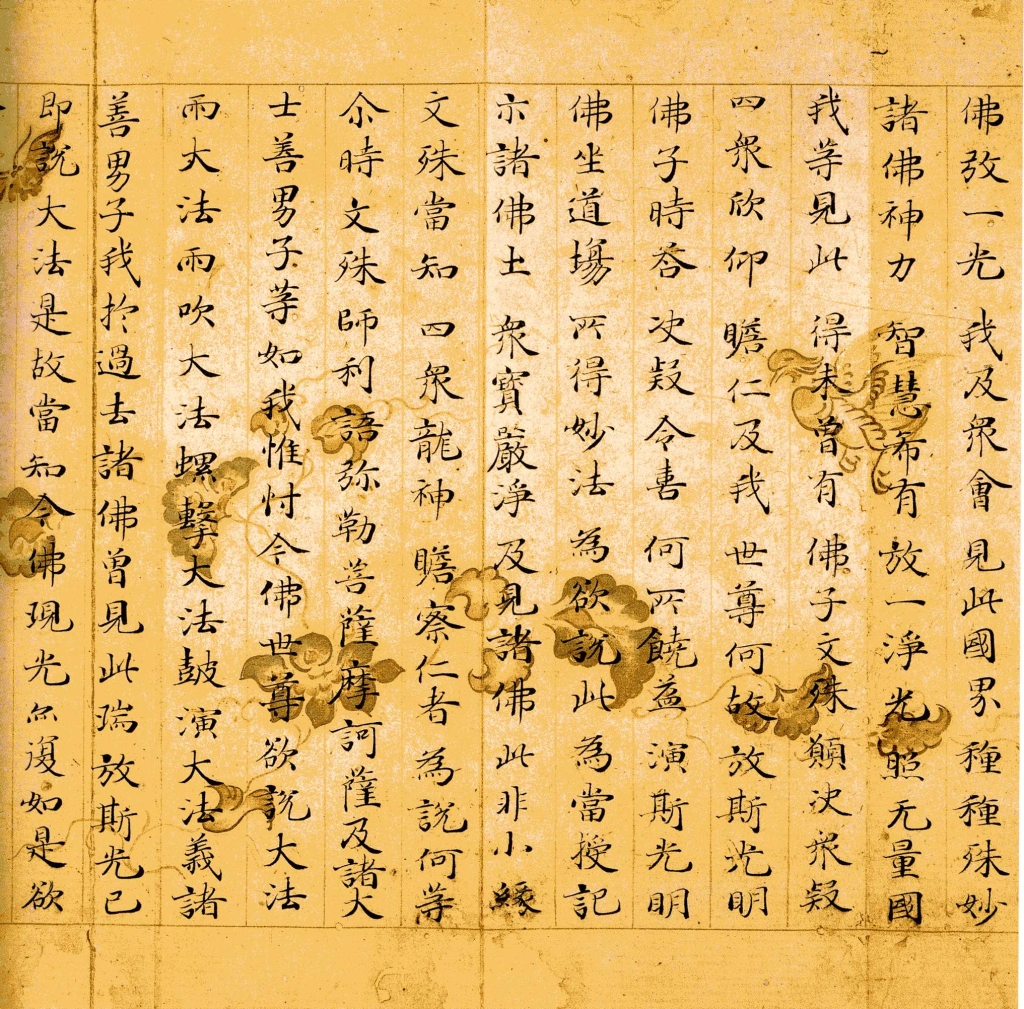 佛放一光 我及衆會 見此國界 種種殊妙
諸佛神力 智慧希有 放一淨光 照无量國
我等見此 得未曾有 佛子文殊 願决衆疑
四衆欣仰 瞻仁及我 世尊何故 放斯光明
佛子時荅 决疑令喜 何所饒益 演斯光明
佛坐道場 所得妙法 為欲說此 為當授記
示諸佛土 衆寶嚴淨 及見諸佛 此非小縁
文殊當知 四衆龍神 瞻察仁者 為說何等
尒時文殊師利語弥勒菩薩摩訶薩及諸大
士善男子等如我惟忖今佛世尊欲說大法
雨大法雨吹大法螺擊大法鼓演大法義諸
善男子我於過去諸佛曾見此瑞放斯光已
即說大法是故當知今佛現光亦復如是欲